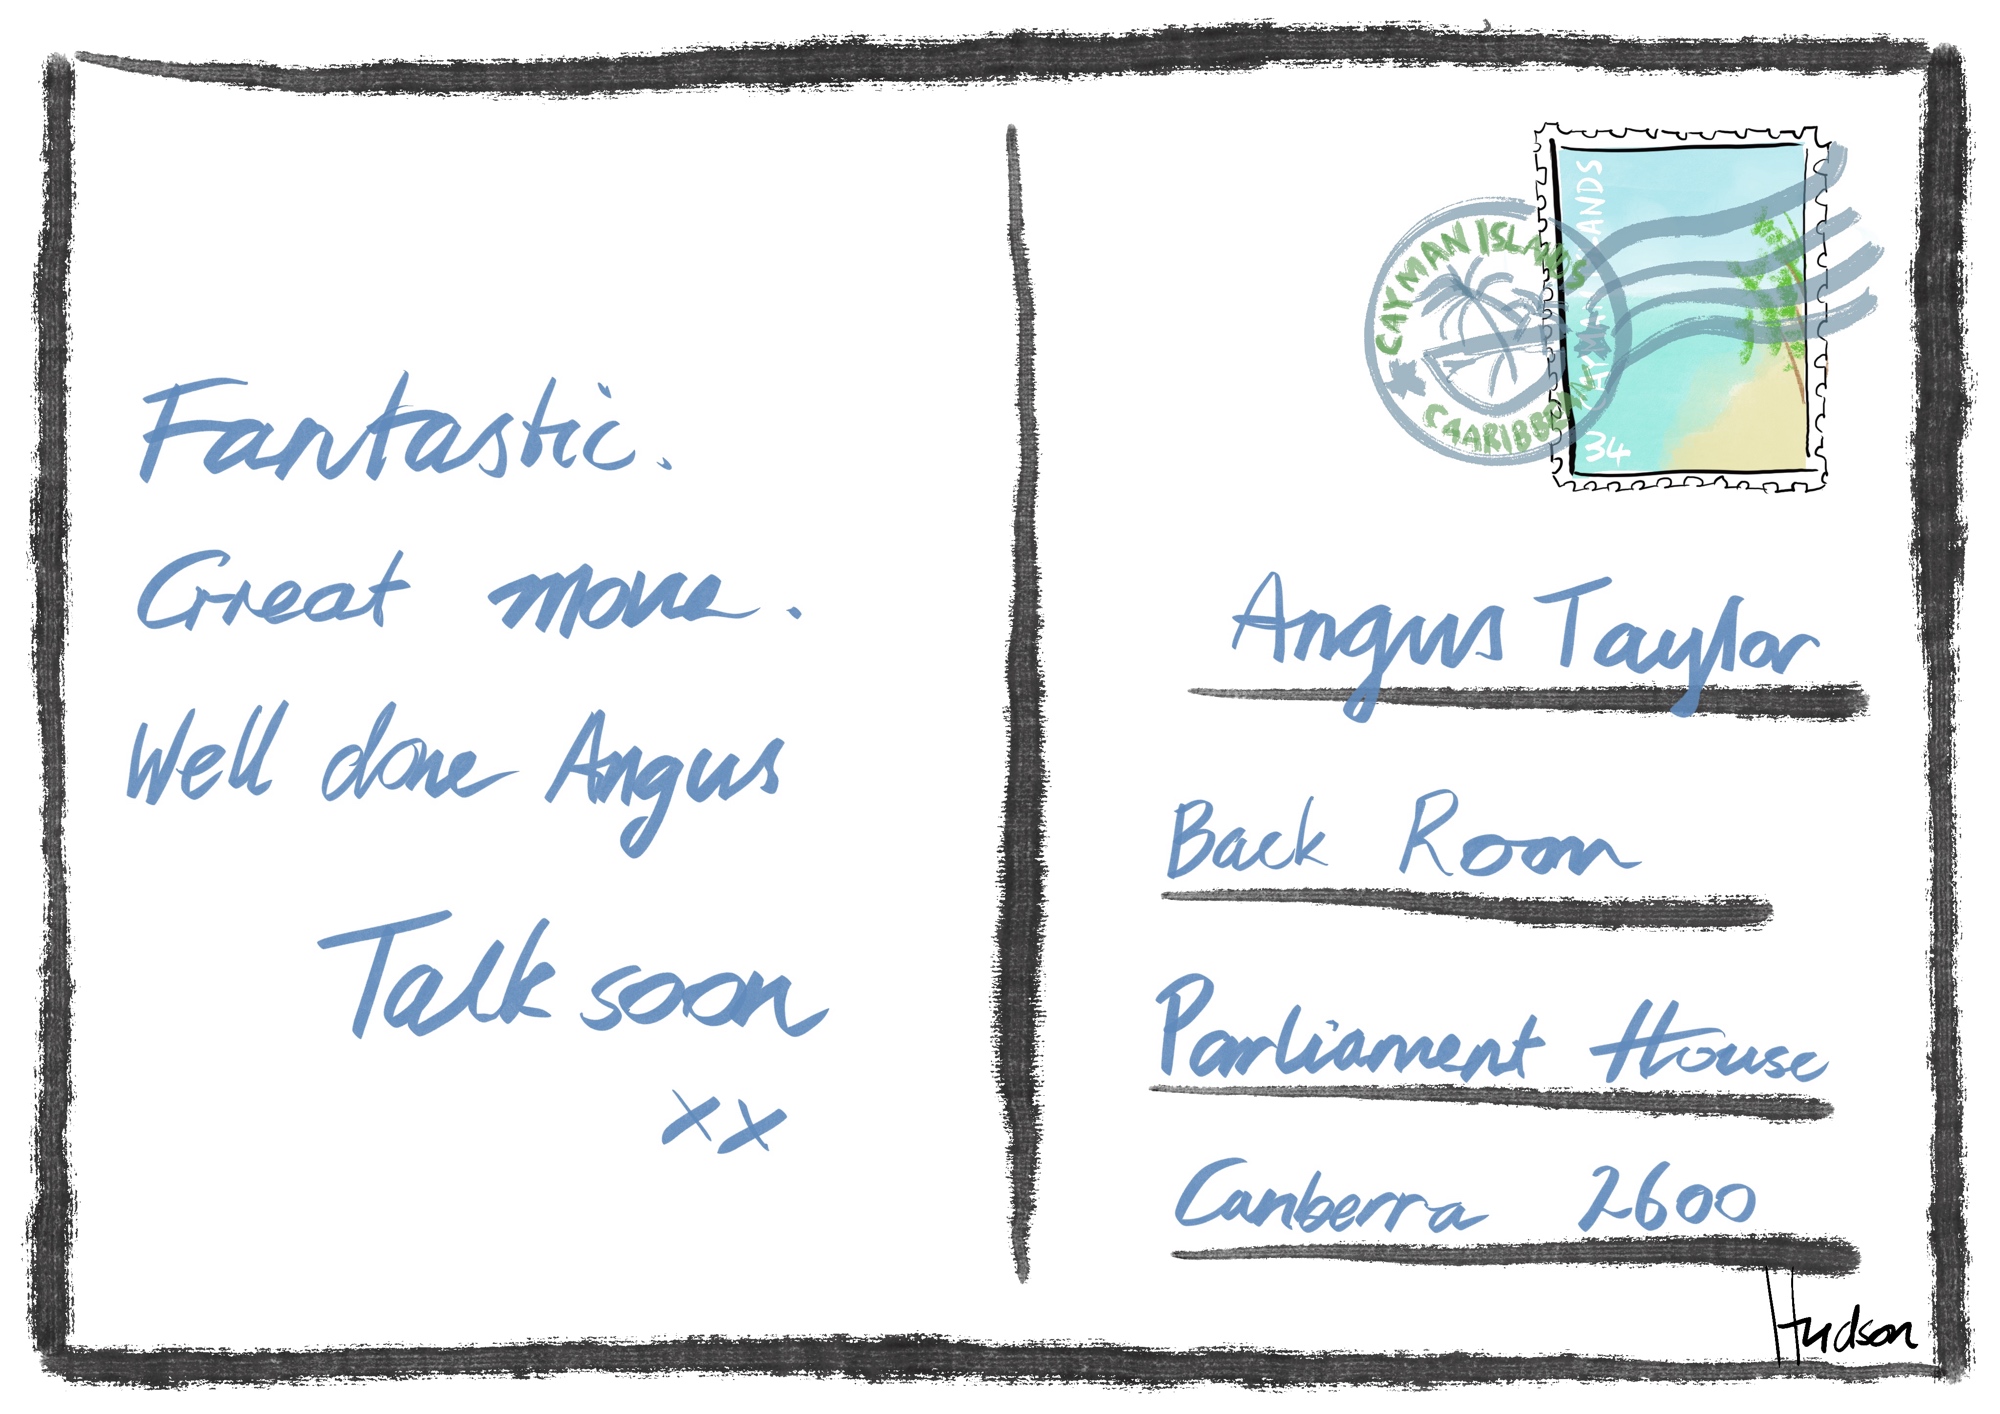 Fantastic.
Great move.
Well done Angus
Talk soon
xx
CAYMAN ISLANDS
CAARIBBEAN
CAYMAN ISLANDS
34
Angus Taylor
Back Room
Parliament House
Canberra 2600
Hudson